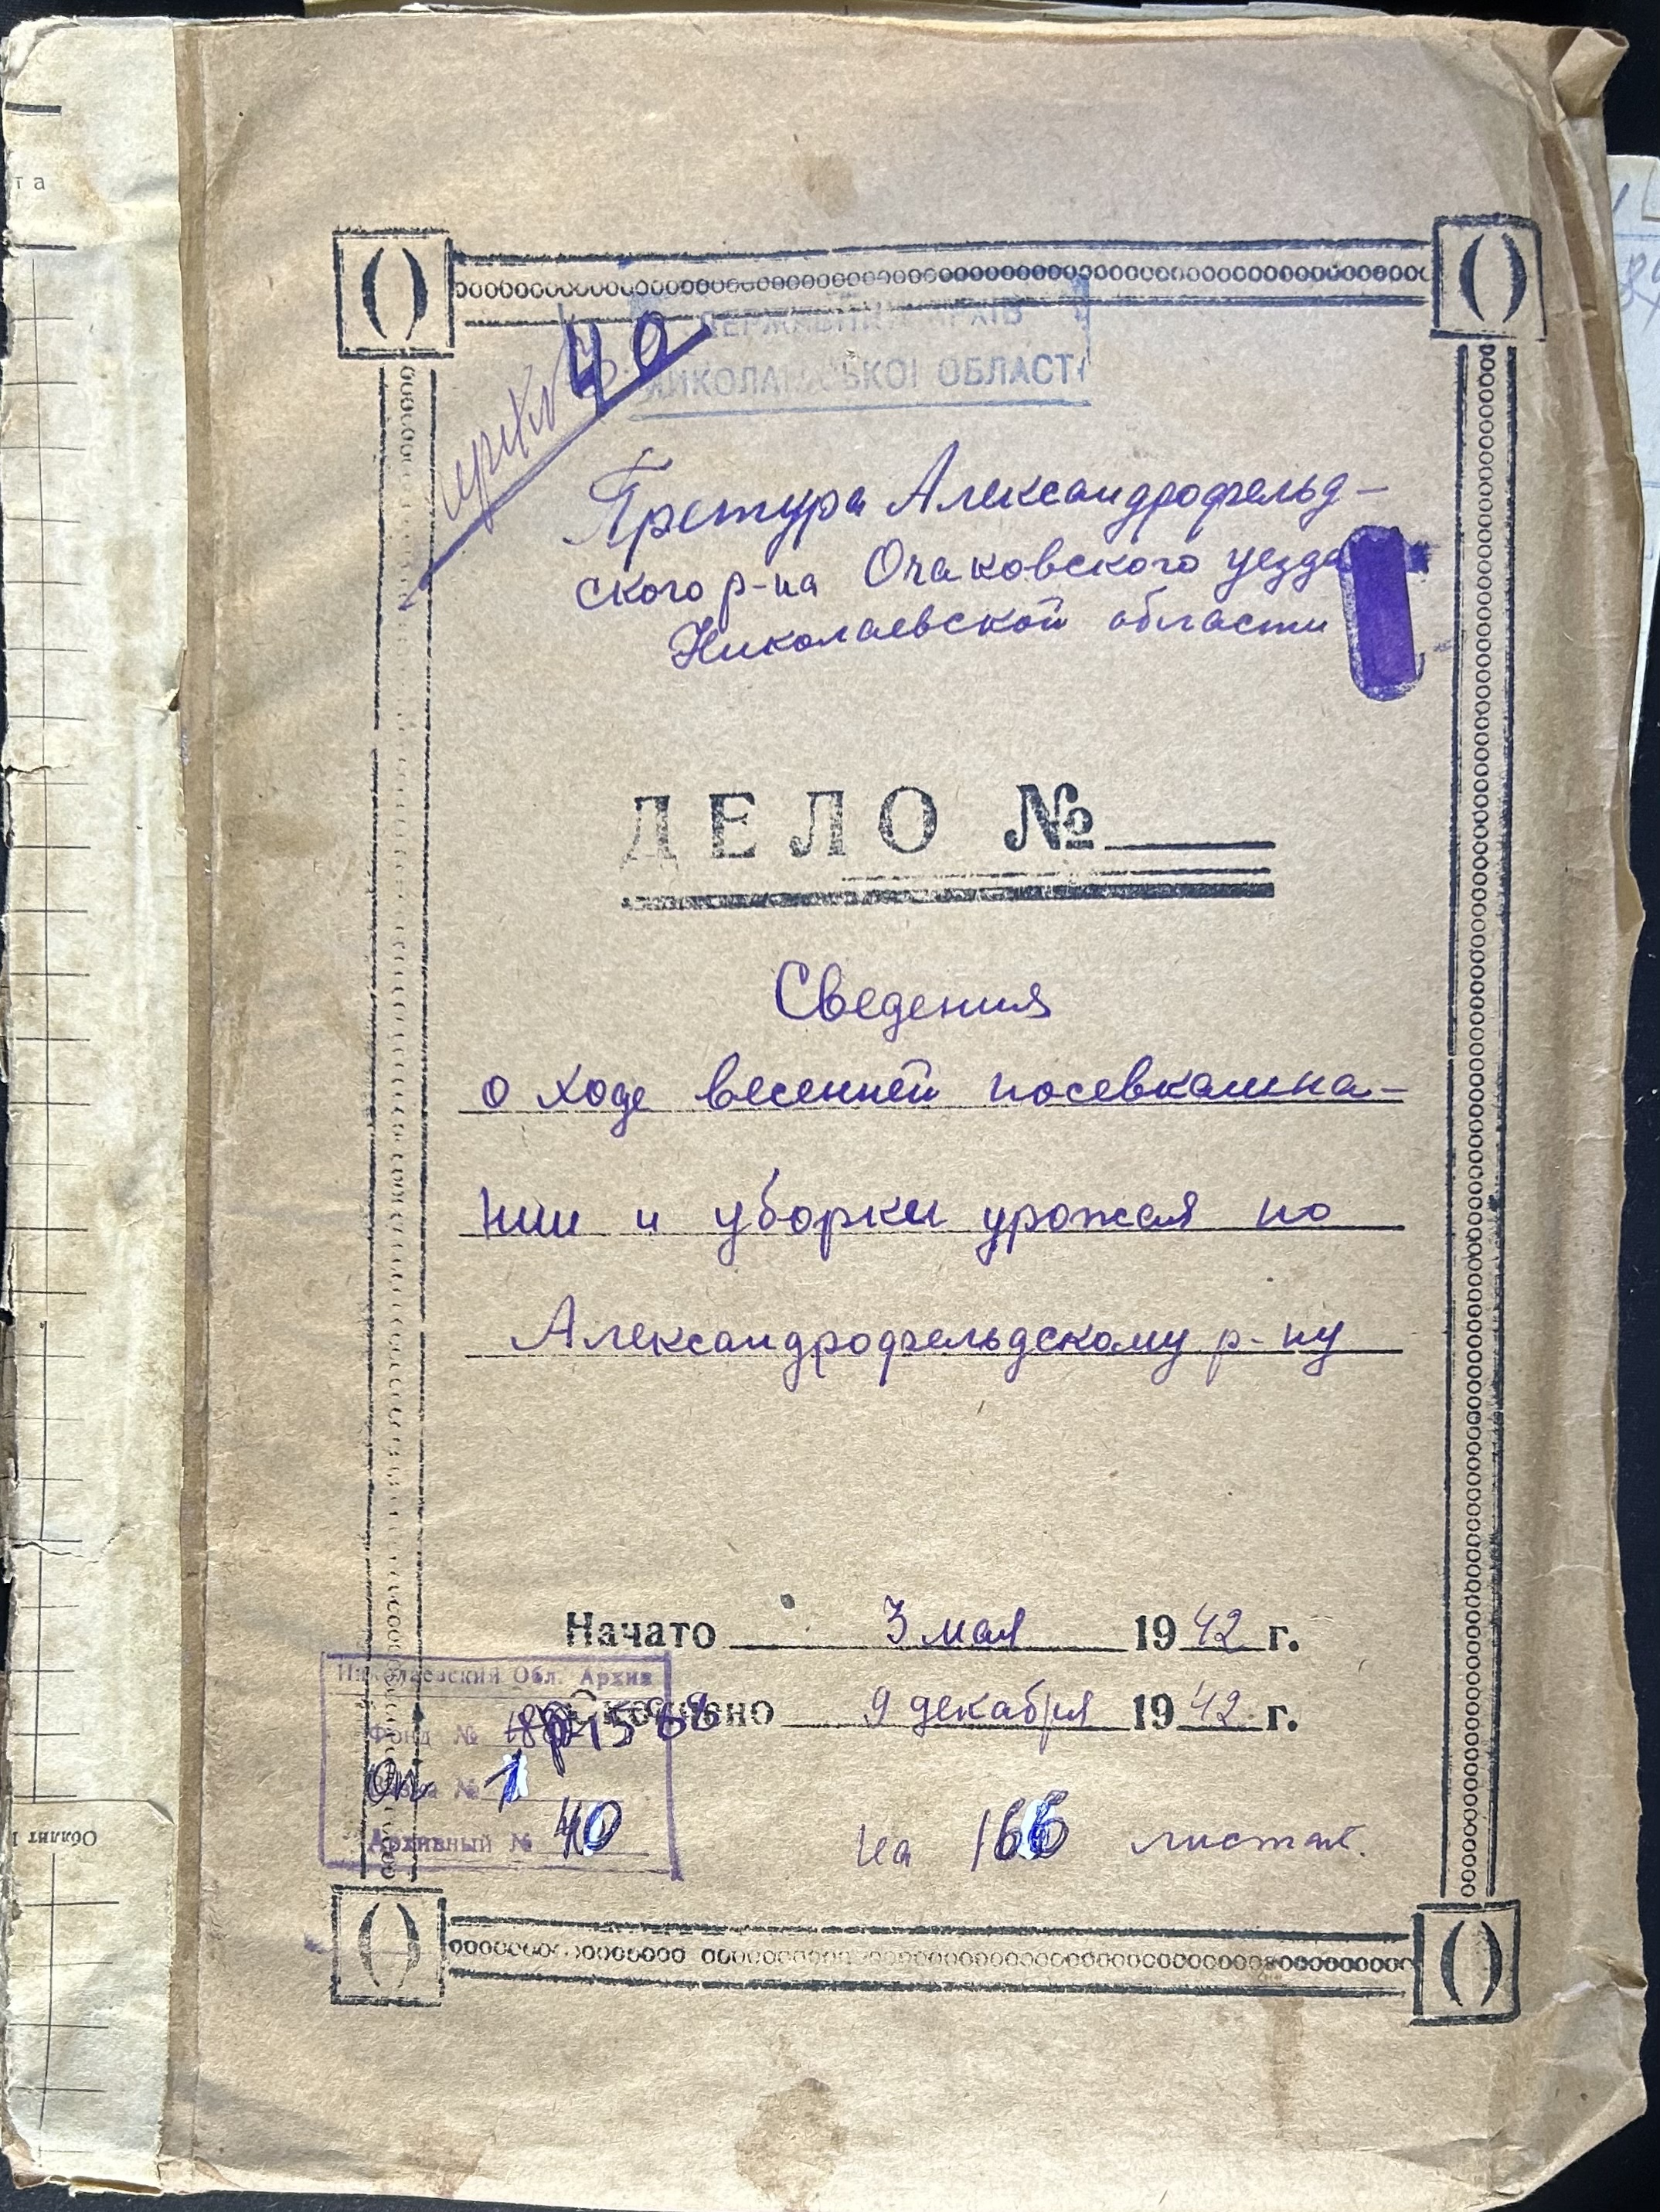 40
ДЕРЖАВНИЙ АРХІВ
МИКОЛАЇВСЬКОЇ ОБЛАСТІ
Претура Александрофельд-
ского р-на Очаковского уезда
Николаевской области
ДЕЛО №
Сведения
о ходе весенней посевкампа-
нии и уборки урожая по
Александрофельдскому р-ну
Начато 3 мая 1942 г.
Окончено 9 декабря 1942 г.
Николаевский Обл. Архив
Фонд № р-1568
Оп 1
Архивный № 40
на 166 листах.